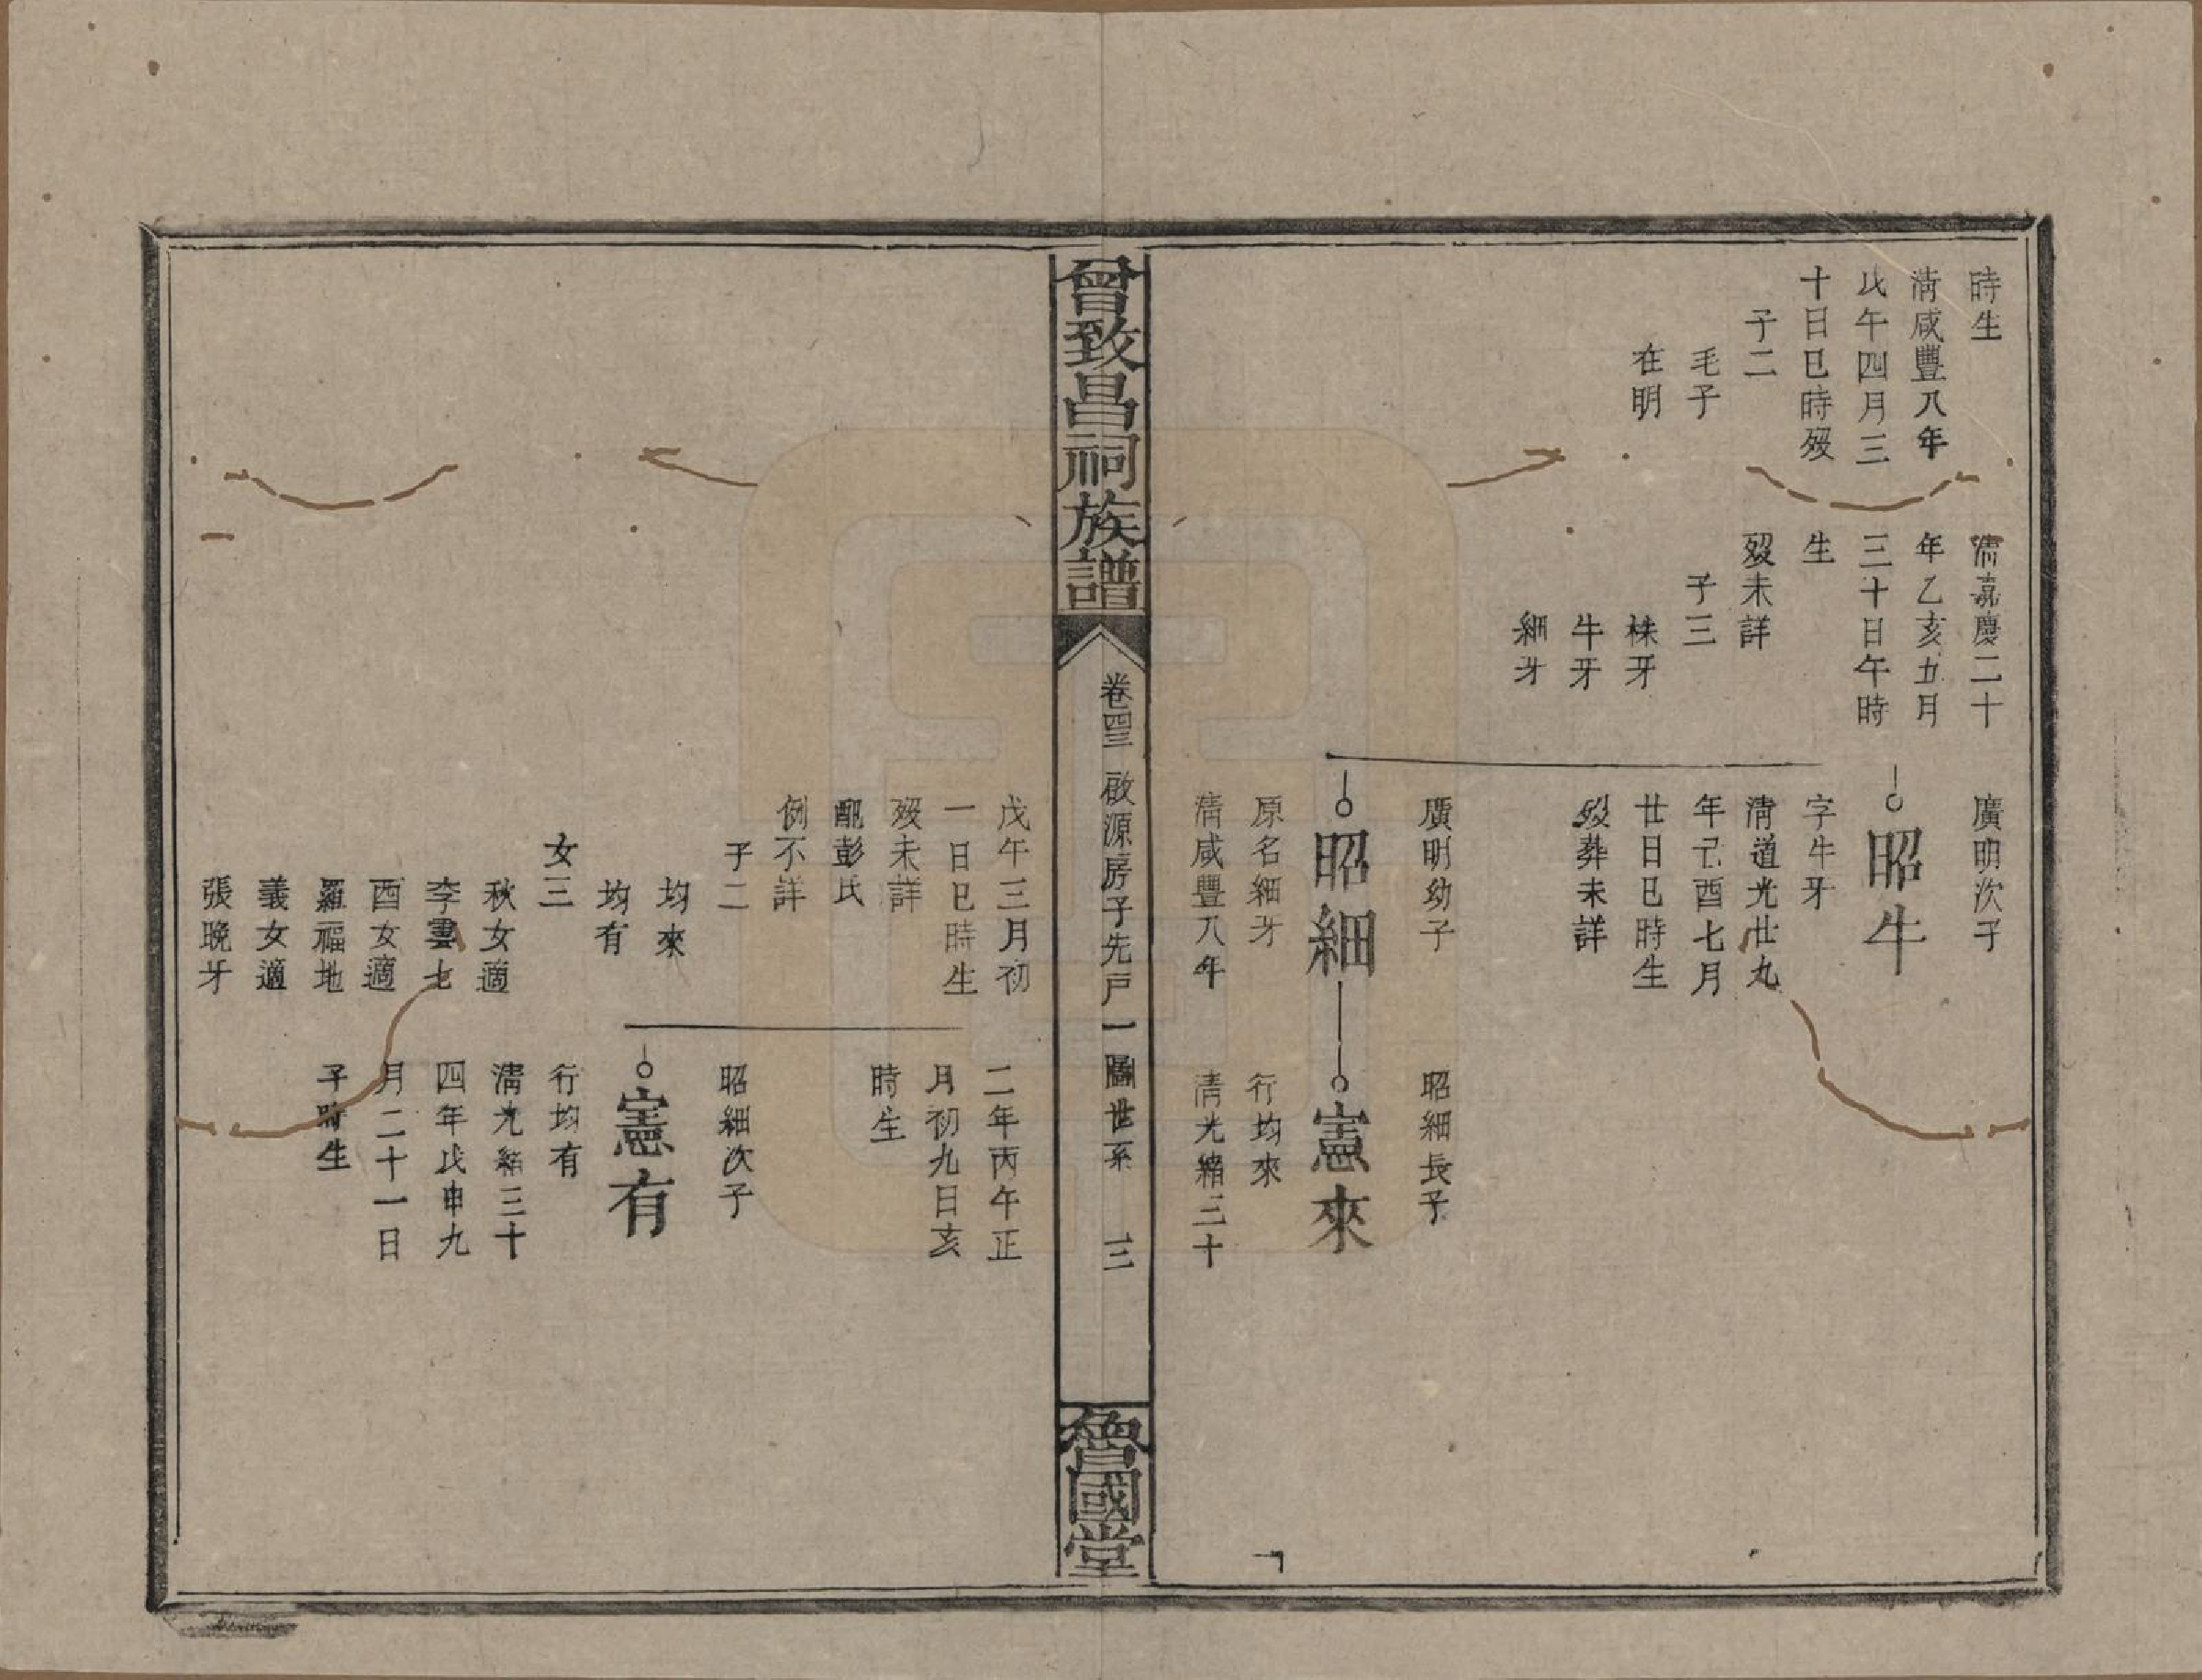 時生
清咸豐八年
戊午四月三
十日巳時歿
子二
毛子
在明
清嘉慶二十
年乙亥五月
三十日午時
生
歿未詳
子三
株牙
牛牙
細牙
廣明次子
昭牛
字牛牙
清道光廿九
年己酉七月
廿日巳時生
歿葬未詳
廣明幼子
昭細
原名細牙
清咸豐八年
昭細長子
憲來
行均來
清光緒三十
曾致昌祠族譜
卷四三
啟源房子先戸一圖世系
三
魯國堂
戊午三月初
一日巳時生
歿未詳
配彭氏
例不詳
子二
均來
均有
女三
秋女適
李雲七
酉女適
羅福地
義女適
張晚牙
二年丙午正
月初九日亥
時生
昭細次子
憲有
行均有
清光緒三十
四年戊申九
月二十一日
子時生